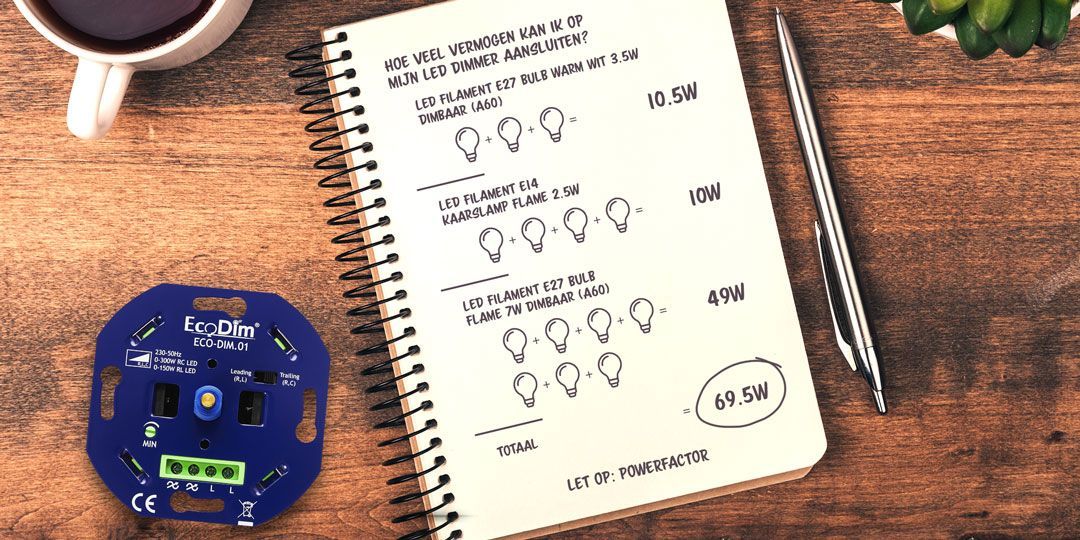 HOE VEEL VERMOGEN KAN IK OP
MIJN LED DIMMER AANSLUITEN?
LED FILAMENT E27 BULB WARM WIT 3.5W
DIMBAAR (A60)
+ + =
10.5W
LED FILAMENT E14
KAARSLAMP FLAME 2.5W
+ + + =
10W
LED FILAMENT E27 BULB
FLAME 7W DIMBAAR (A60)
+ + + =
49W
+ +
= 69.5W
TOTAAL
LET OP: POWERFACTOR
EcoDim®
ECO-DIM.01
230-50Hz
0-300W RC LED
0-150W RL LED
Leading
(R,L)
Trailing
(R,C)
MIN
L L
CE